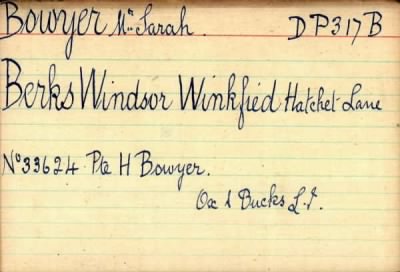 Bowyer Mrs Sarah. DP317B
Berks Windsor Winkfied Hatchet Lane
No 33624 Pte H Bowyer.
Ox & Bucks L.I.